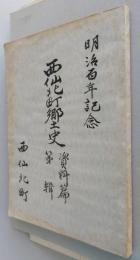 明治百年記念
西仙北町郷土史
資料篇
第 輯
西仙北町